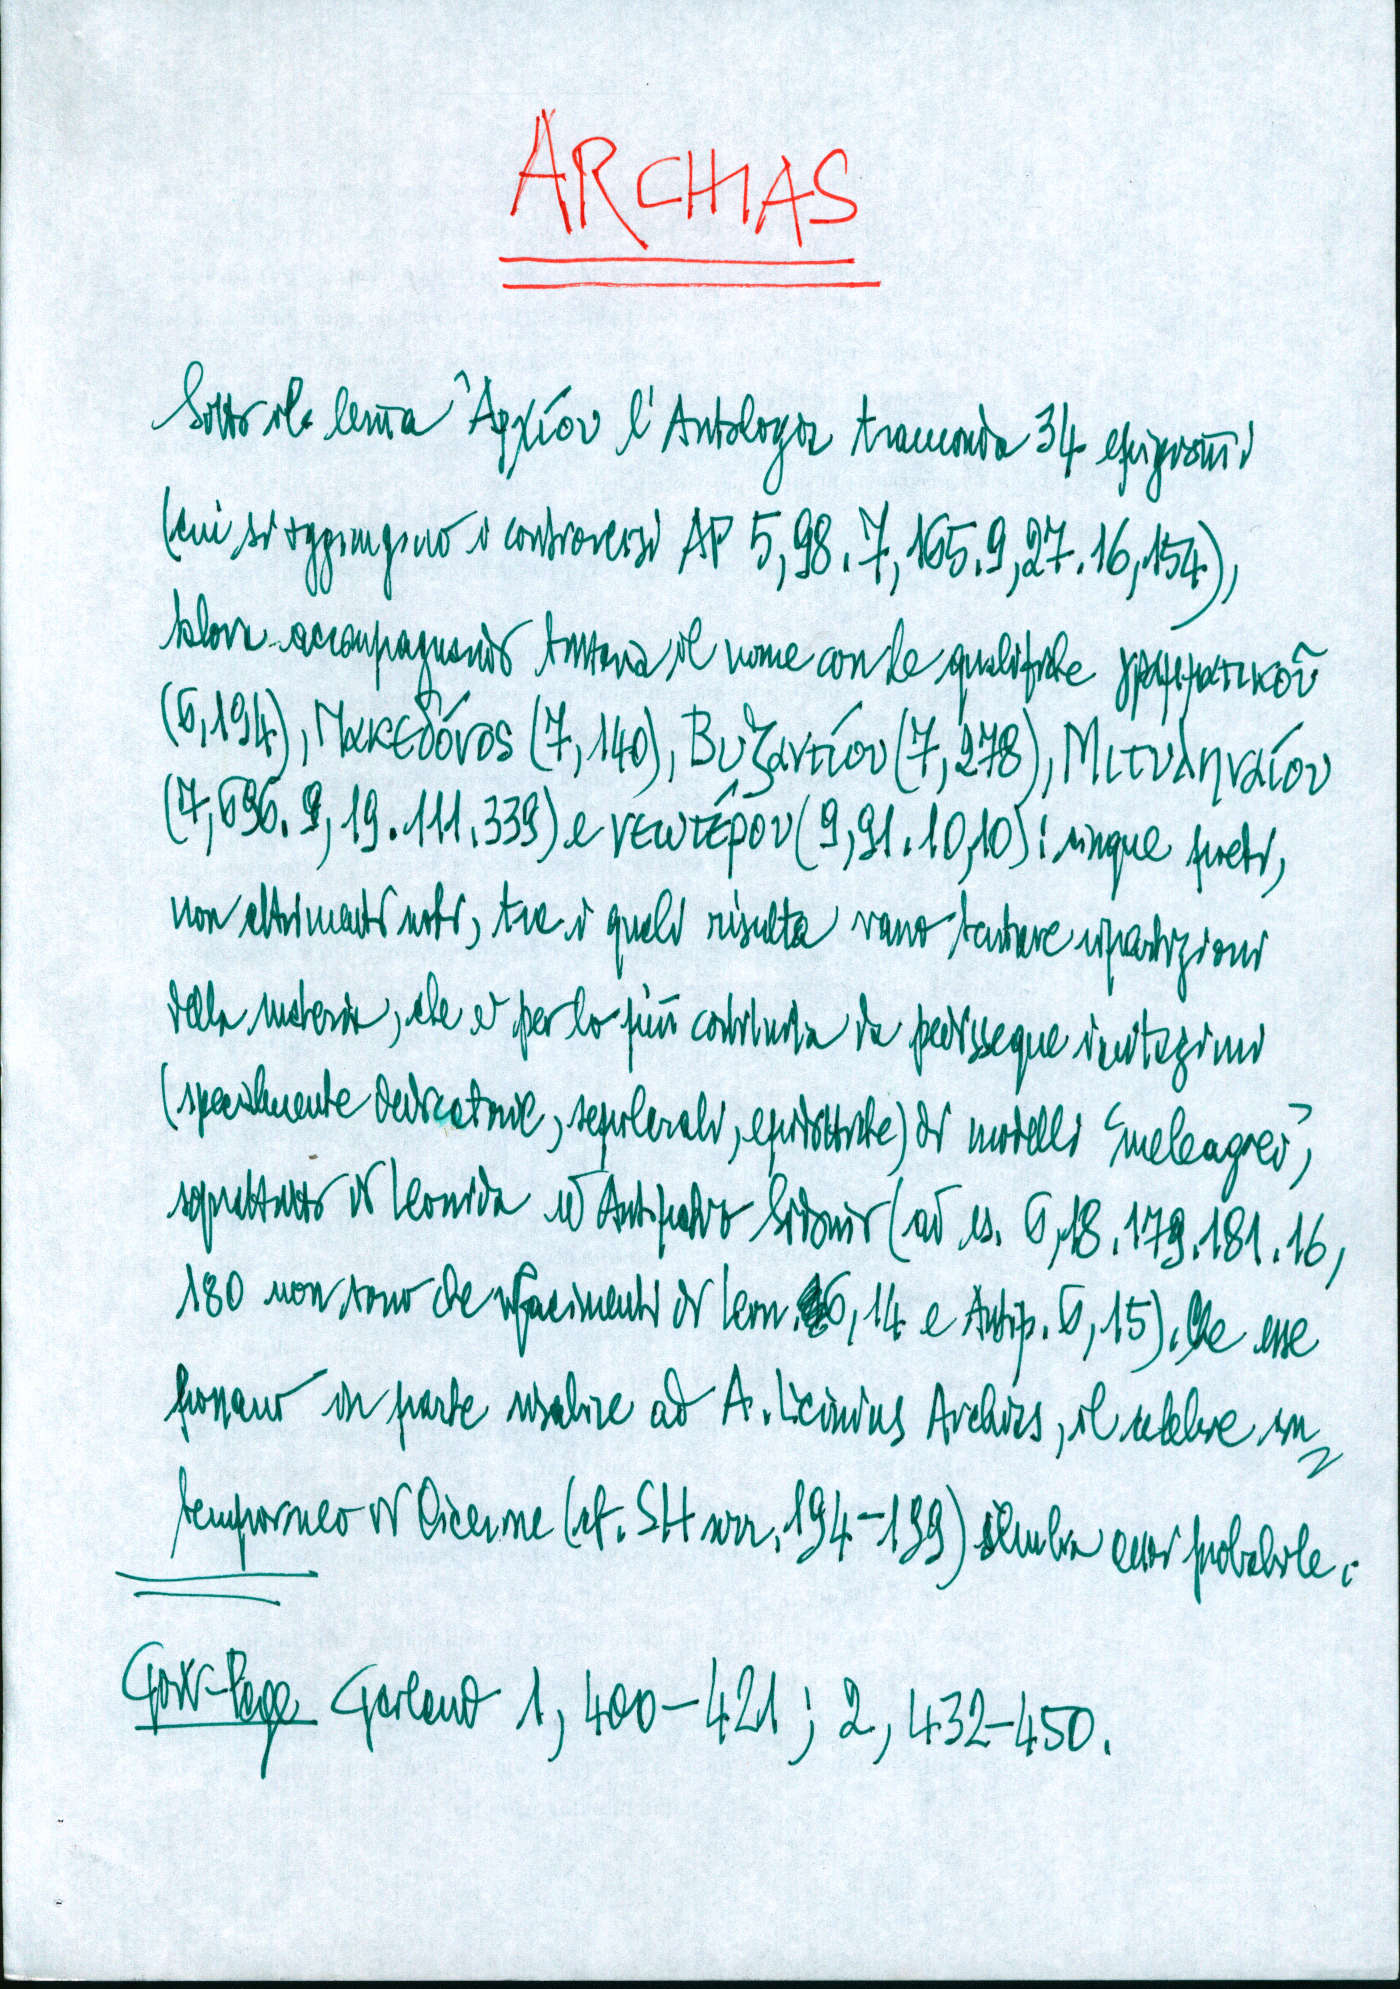 ARCHIAS
Sotto il lemma Ἀρχίου l'Antologia tramanda 34 epigrammi
(cui si aggiungono i controversi AP 5,98. 7,165. 9,27. 16,154),
talora accompagnando tuttavia il nome con le qualifiche γραμματικοῦ
(6,194), Μακεδόνος (7,140), Βυζαντίου (7,278), Μιτυληναίου
(7,696. 9,19.111.339) e νεωτέρου (9,91. 10,10): cinque poeti,
non altrimenti noti, tra i quali risulta vano tentare ripartizioni
della materia, che è per lo più costituita da pedisseque imitazioni
(specialmente dedicatorie, sepolcrali, epidittiche) di modelli "meleagrei",
soprattutto di Leonida ed Antipatro Sidonio (ad es. 6,18.179.181. 16,
180 non sono che rifacimenti di Leon. 6,14 e Antip. 6,15). Che esse
possano in parte risalire ad A. Licinius Archias, il celebre con
temporaneo di Cicerone (cf. SH nrr. 194-199) sembra assai probabile.
Gow-Page Garland 1, 400-421; 2, 432-450.